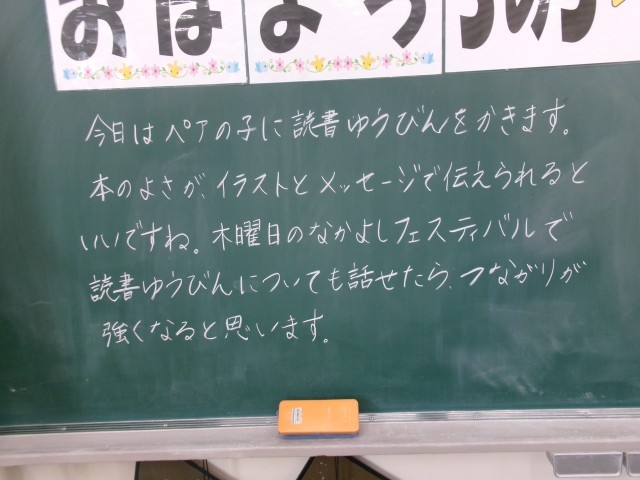 おはようの
今日はペアの子に読書ゆうびんをかきます。
本のよさが、イラストとメッセージで伝えられると
いいですね。木曜日のなかよしフェスティバルで
読書ゆうびんについても話せたら、つながりが
強くなると思います。